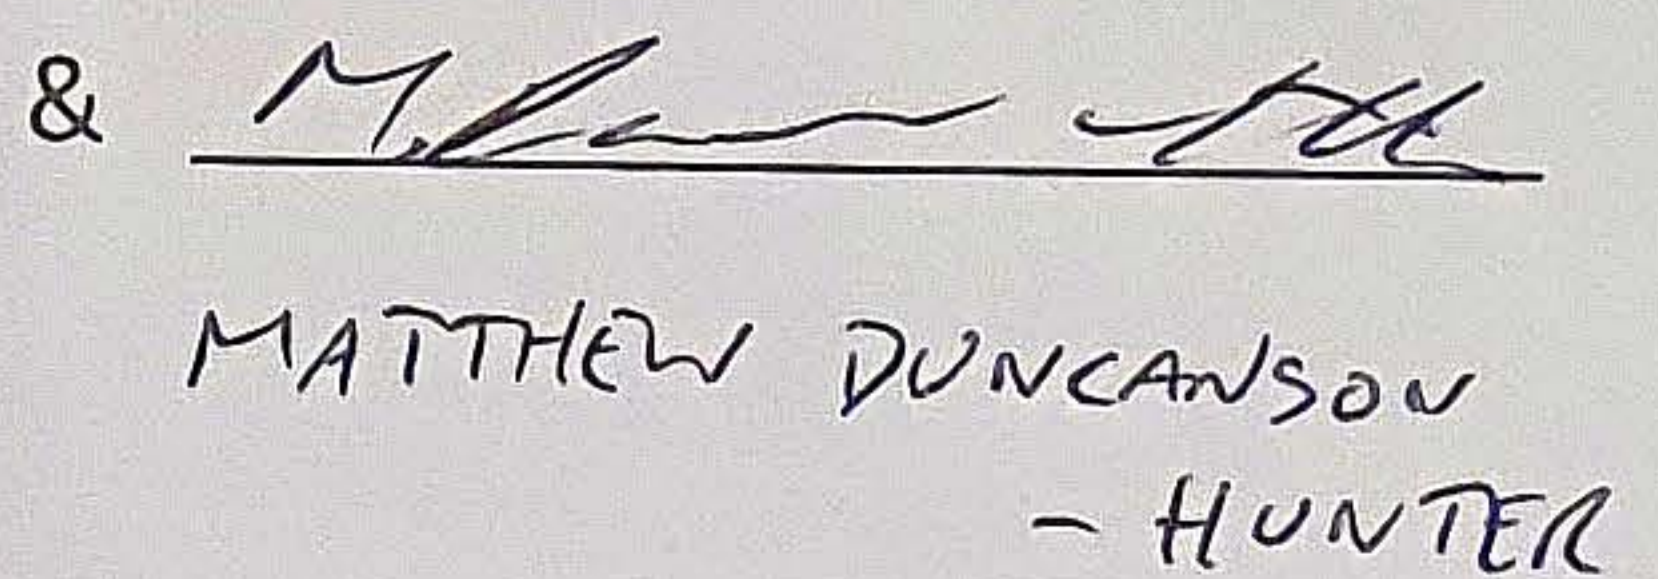 &
MATTHEW DUNCANSON
- HUNTER